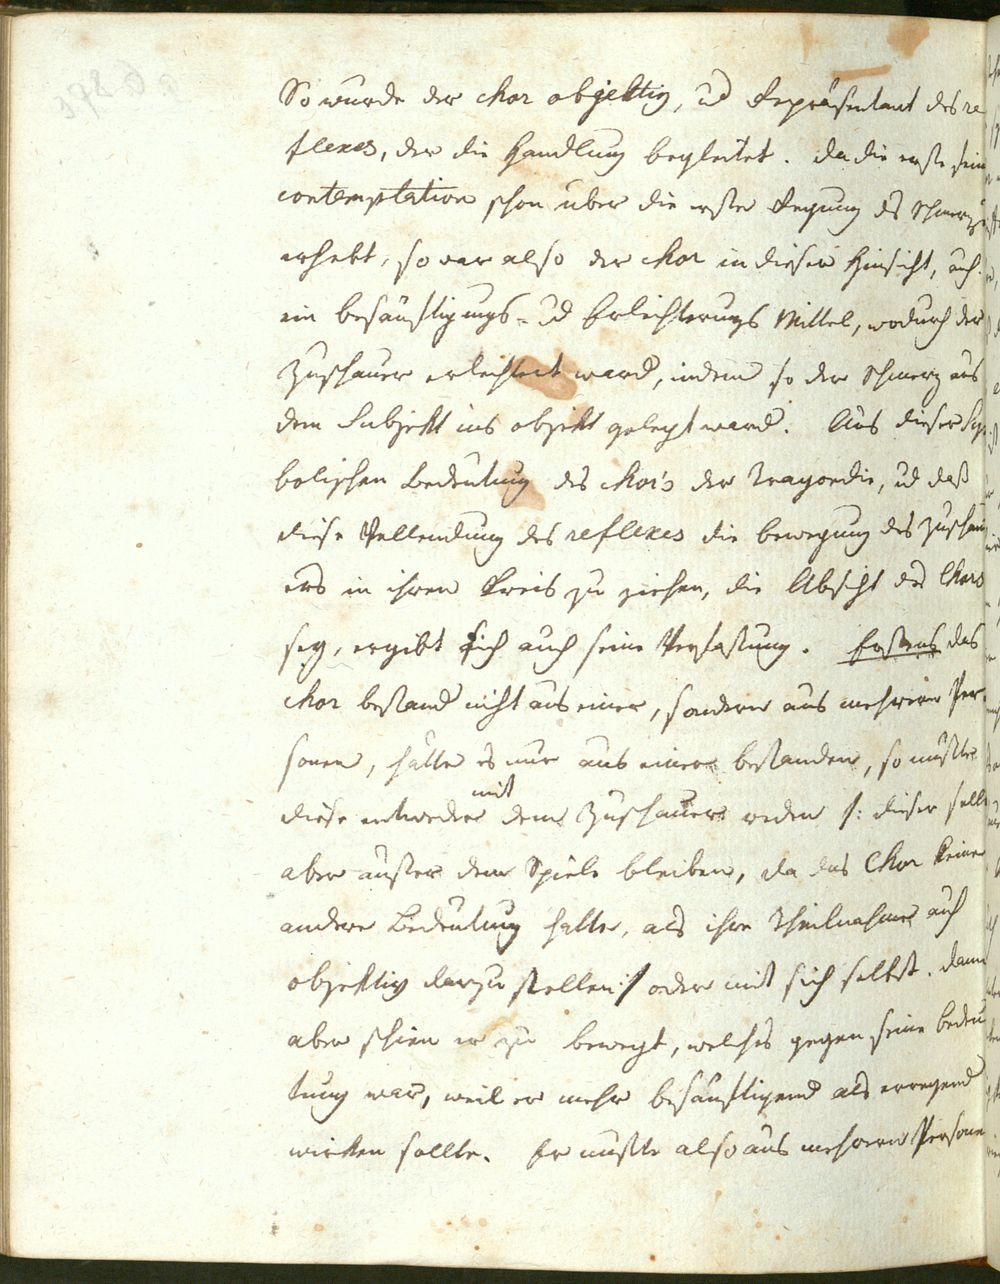 So wurde der Chor objektiv, ud Repräsentant des re
flexes, der die Handlung begleitet. Da die erste sein
contemplation schon über die erste Regung des Schmerzes
erhebt, so war also der Chor in dieser Hinsicht, auch
ein besänftigungs- ud Erleichterungs Mittel, wodurch der
Zuschauer erleichtert ward, indem so der Schmerz aus
dem Subjekt ins objekt gelegt ward. Aus dieser Sym
bolischen Bedeutung des Chors der Tragoedie, ud daß
diese Vollendung des reflexes die bewegung des Zuschau
ers in ihren Kreis zu ziehen, die Absicht des Chors
sey, ergibt sich auch seine Verfassung. Erstens das
Chor bestand nicht aus einer, sondern aus mehrern Per
sonen, hätte es nur aus einer bestanden, so mußte
diese entweder mit dem Zuschauer reden /: dieser sollte
aber außer dem Spiele bleiben, da das Chor keine
andere Bedeutung hatte, als ihre Theilnahme auch
objektiv darzustellen :/ oder mit sich selbst. dann
aber schien er zu bewegt, welches gegen seine bedeu
tung war, weil er mehr besänftigend als erregend
wirken sollte. Er mußte also aus mehrern Personen